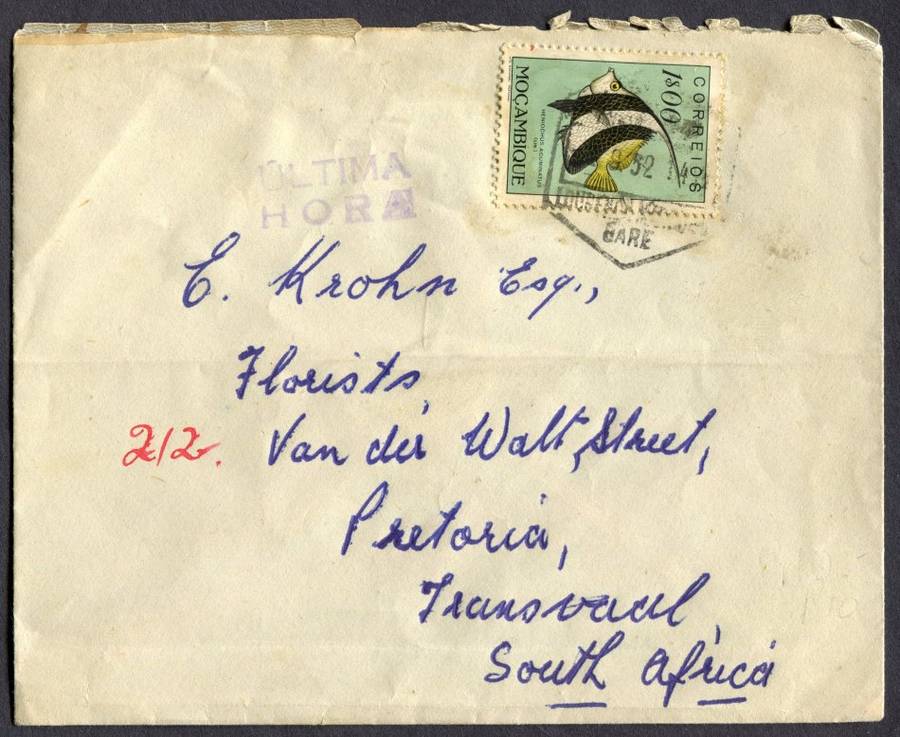 CORREIOS
1$00
HENIOCHUS ACUMINATUS
MOÇAMBIQUE
52
GARE
ÚLTIMA
HORA
E. Krohn Esq.,
Florists,
212. Van der Walt Street,
Pretoria,
Transvaal,
South Africa